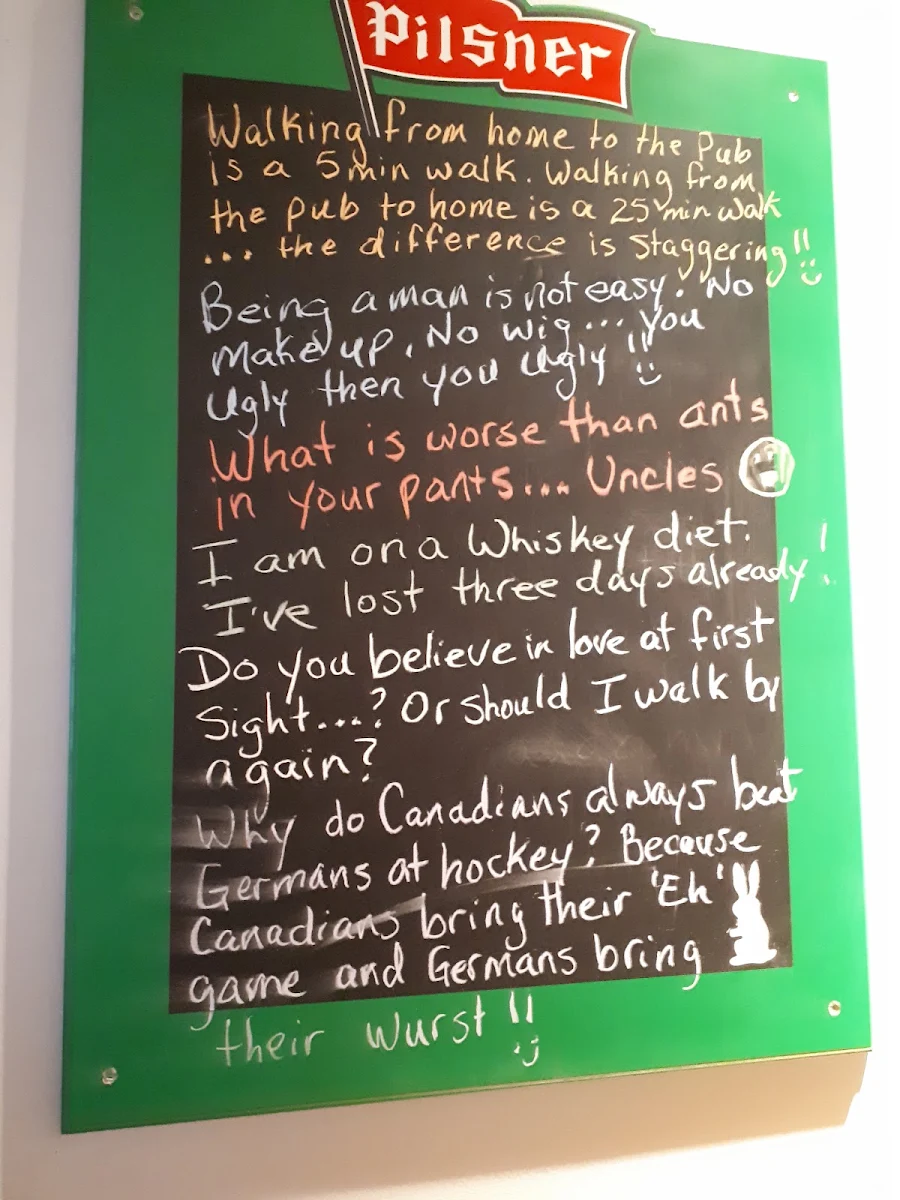 Pilsner
Walking from home to the Pub
is a 5min walk. Walking from
the pub to home is a 25 min walk
... the difference is Staggering!!
Being a man is not easy. No
Make up. No wig... You
Ugly then you Ugly !!
What is worse than ants
in your pants... Uncles
I am on a Whiskey diet.
I've lost three days already!
Do you believe in love at first
Sight...? Or should I walk by
again?
Why do Canadians always beat
Germans at hockey? Because
Canadians bring their 'Eh'
game and Germans bring
their wurst!!